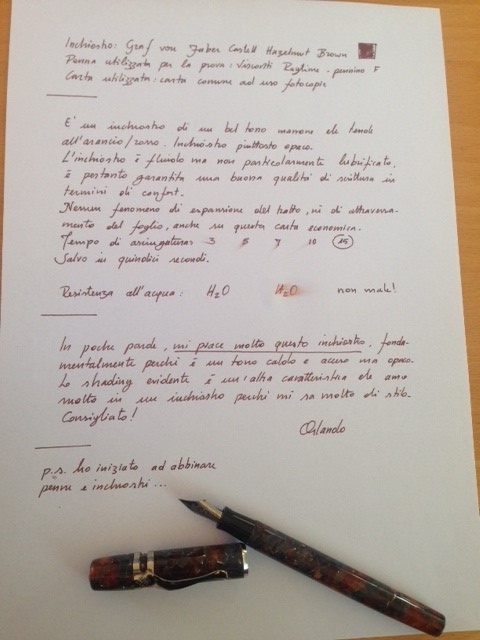 Inchiostro: Graf von Faber Castell Hazelnut Brown
Penna utilizzata per la prova: Visconti Ragtime - pennino F
Carta utilizzata: carta comune ad uso fotocopie
E' un inchiostro di un bel tono marrone che tende
all'arancio/rosso. Inchiostro piuttosto opaco.
L'inchiostro è fluido ma non particolarmente lubrificato,
è pertanto garantita una buona qualità di scrittura in
termini di confort.
Nessun fenomeno di espansione del tratto, nè di attraversa-
mento del foglio, anche su questa carta economica.
Tempo di asciugatura: 3 5 7 10 15
Salvo in quindici secondi.
Resistenza all'acqua: H2O H2O non male!
In poche parole, mi piace molto questo inchiostro, fonda-
mentalmente perchè è un tono caldo e acceso ma opaco.
Lo shading evidente è un'altra caratteristica che amo
molto in un inchiostro perchè mi sa molto di stilo.
Consigliato!
Orlando
p.s. ho iniziato ad abbinare
penne e inchiostri...